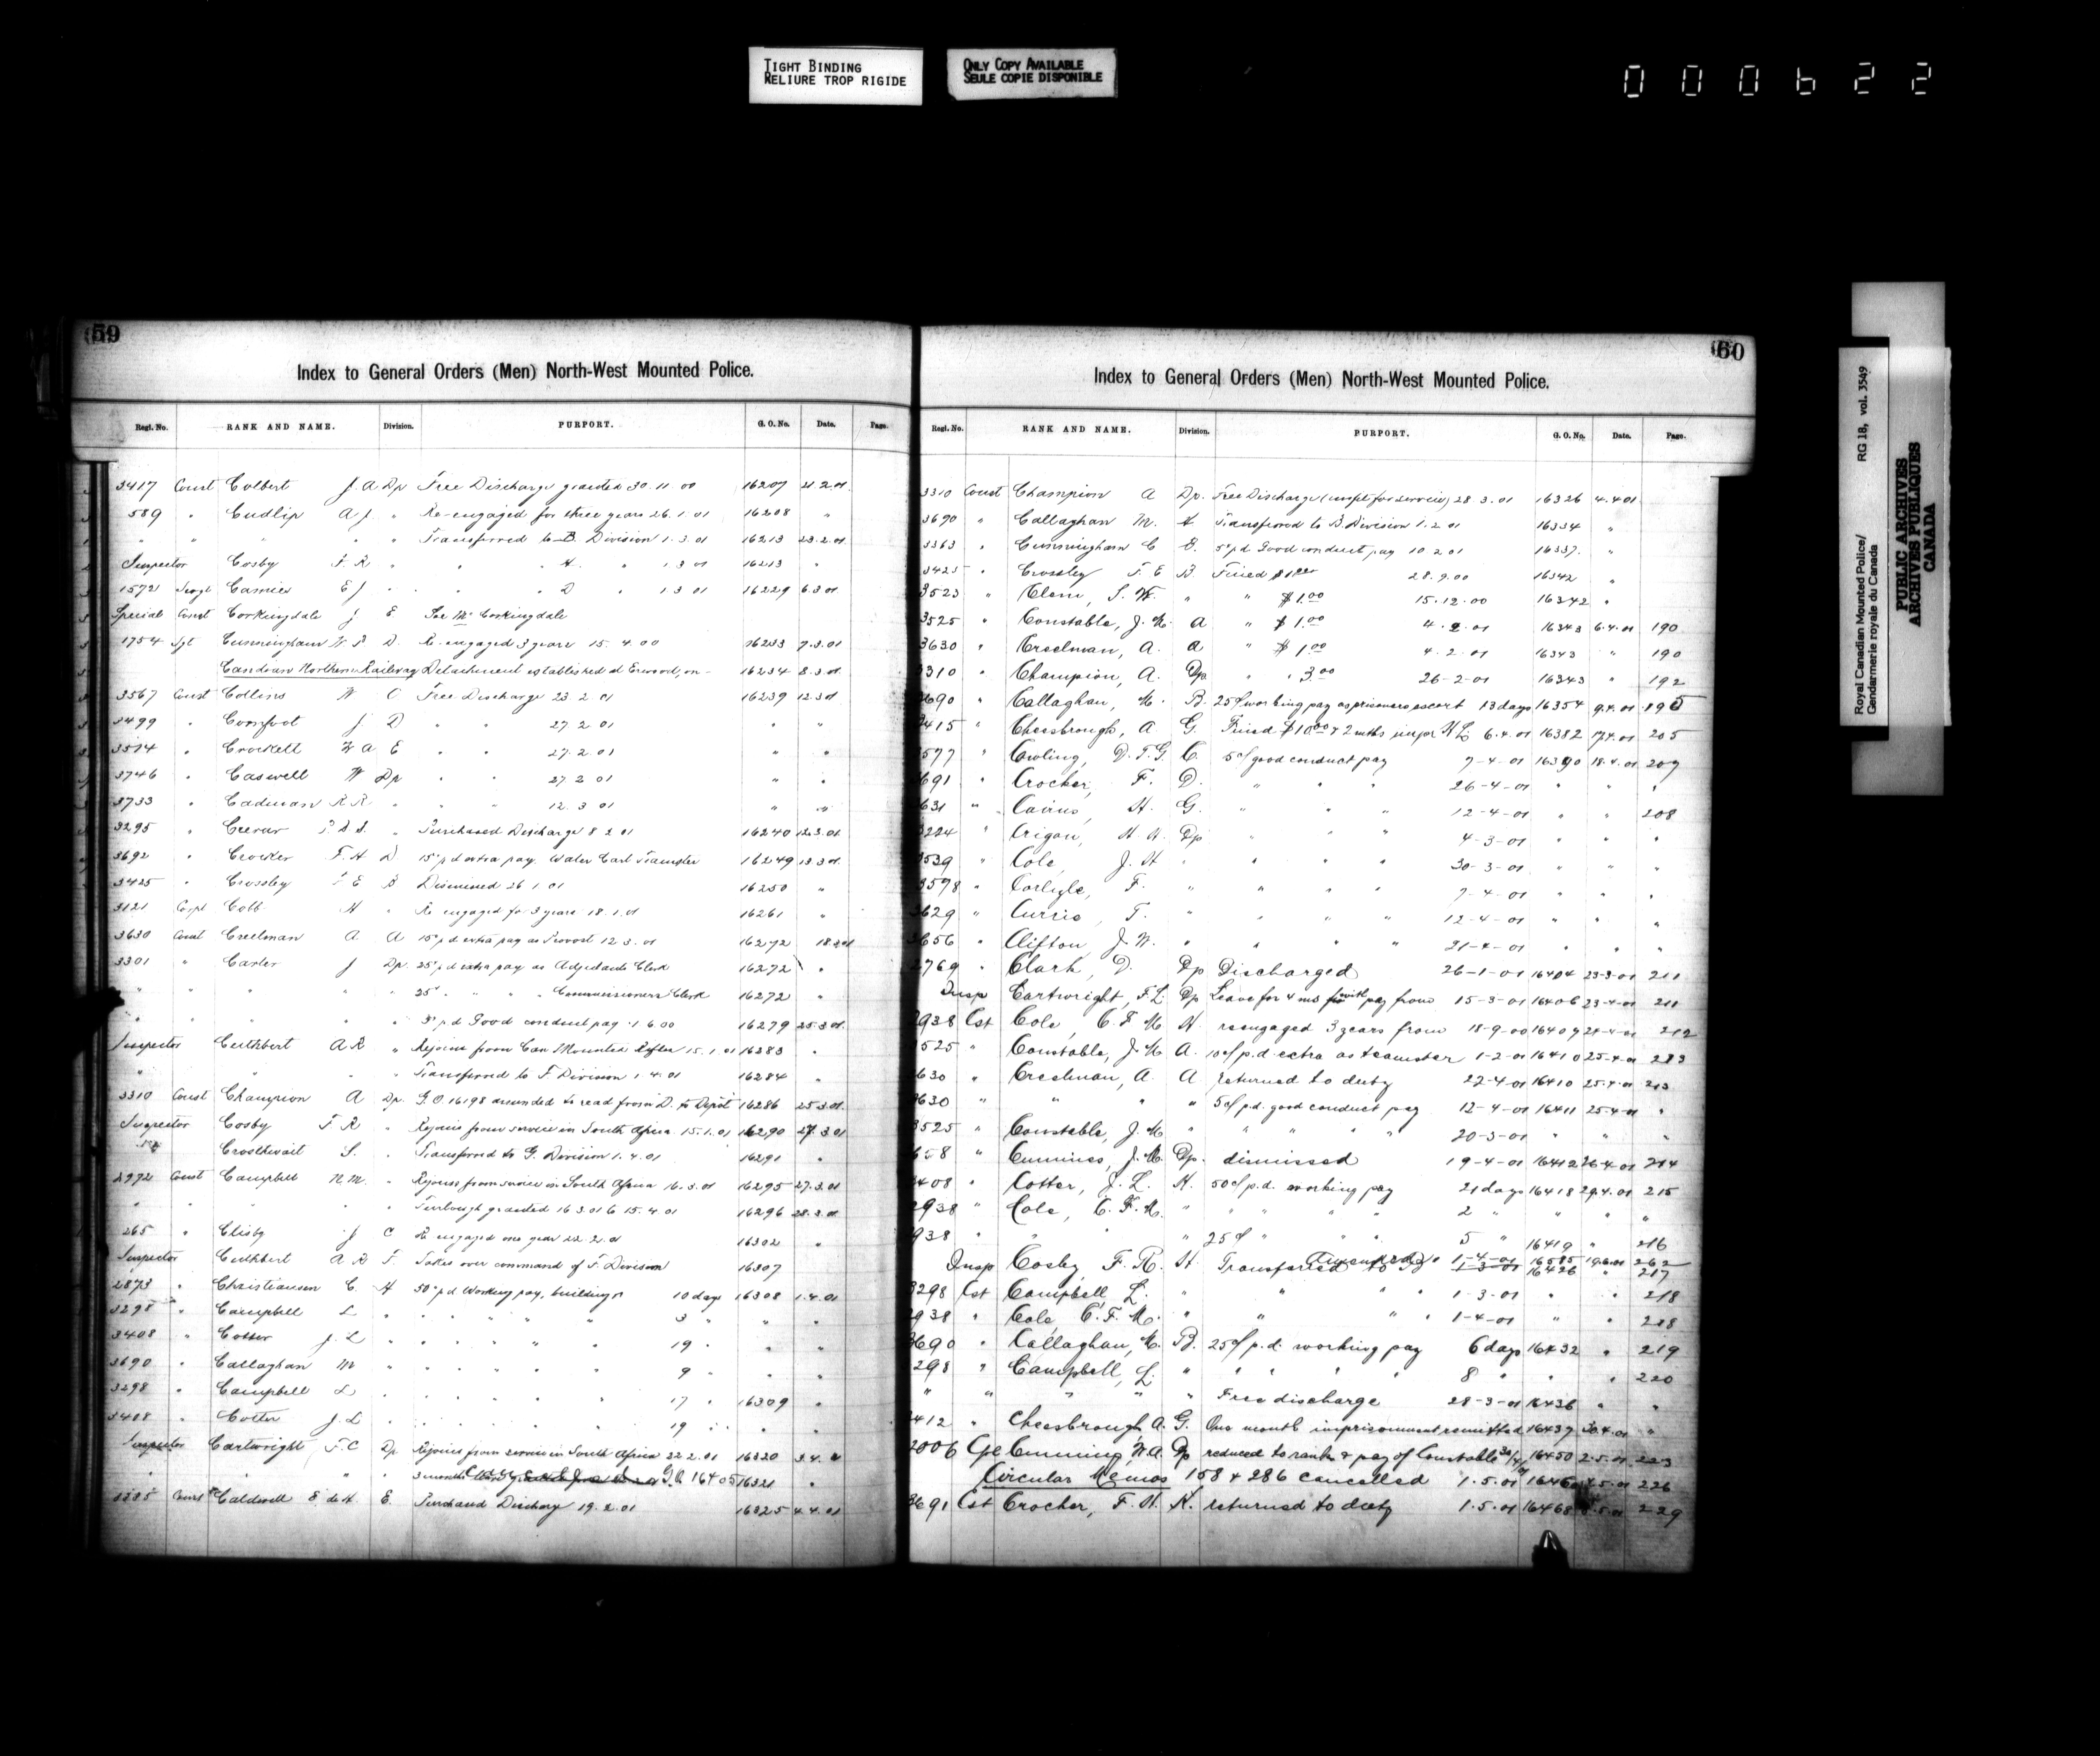 TIGHT BINDING
RELIURE TROP RIGIDE
ONLY COPY AVAILABLE
SEULE COPIE DISPONIBLE
000622
59
Index to General Orders (Men) North-West Mounted Police.
Regt. No. RANK AND NAME. Division. PURPORT. G. O. No. Date. Page.
3417 Const Colbert J. A Dp Free Discharge granted 30.11.00 16207 21.2.01
589 " Cudlip A J " Re-engaged for three years 26.1.01 16208 "
" " " " Transferred to B. Division 1.3.01 16213 23.2.01
Inspector Cosby F. R " " " " 1 3 01 16213 "
1572 E J " " D " 1 3 01 16229 6.3.01
Special Const Corkingdale J E. See Mc Corkingdale
1754 Sgt Cunningham D. Re engaged 3 years 15. 4. 00 16233 7.3.01
Candian Northern Railway Detachment established at Erwood, on 16234 8.3.01
3567 Const Collins W C Free Discharge 23 2 01 16239 12.3.01
3499 " Comfoot J D " " 27.2.01 " "
3514 " Crockett W A E " " 27.2.01 " "
3746 " Caswell W Dp " " 27 2 01 " "
3733 " Cadman R R " " " 12. 3 01 " "
3295 " Crerar " Purchased Discharge 8 2 01 16240 12.3.01
3692 " Crocker F. H D 15c p d extra pay. Water Cart Teamster 16249 13.3.01
3425 " Crossley F E B Dismissed 26 1 01 16250 "
3121 Corpl Cobb H " Re engaged for 3 years 18.1.01 16261 "
3630 Const Creelman A A 15c p d extra pay as Provost 12 3.01 16272 18.3.01
3301 " Carter J Dp. 25c p d extra pay as Adjutants Clerk 16272 "
" " " " " 25c " " " Commissioners Clerk 16272 "
" " " " 5c p d Good conduct pay 1 6.00 16279 25.3.01
Inspector Cuthbert A R " Rejoins from Can Mounted Rifles 15.1.01 16283 "
" " " " Transferred to F Division 1 4.01 16284 "
3310 Const Champion A Dp. G.O. 16198 amended to read from D. to Depot 16286 25.3.01
Inspector Cosby F R " Rejoins from service in South Africa 15.1.01 16290 27.3.01
Crosthwait S. " Transferred to G. Division 1.4.01 16291 "
2972 Const Campbell N M. " Rejoins from service in South Africa 16.3.01 16295 27.3.01
" " " Furlough granted 16 3.01 to 15.4.01 16296 28.3.01
265 " Clisby J C Re engaged one year 22.2.01 16302 "
Inspector Cuthbert A R F. Takes over command of F. Division 16307
2873 " Christiansen C. H 50c p d Working pay, building 10 days 16308 1.4.01
3298 " Campbell L " " " " " 3 " " "
3408 " Cotter J. L " " " " " 19 " " "
3690 " Callaghan M " " " " " 9 " " "
3298 " Campbell L " " " " " 17 " 16309 "
3408 " Cotter J. L " " " " 19 " " "
Inspector Cartwright F. C Dp Rejoins from service in South Africa 22 2.01 16320 3.4.
" " " " 3 months G.O. 16405 16321 "
Const Caldwell E. de H E. Purchased Discharge 19.2.01 16325 4.4.01
60
Index to General Orders (Men) North-West Mounted Police.
Regt. No. RANK AND NAME. Division. PURPORT. G. O. No. Date. Page.
3310 Const Champion A Dp. Free Discharge (unfit for service) 28 3.01 16326 4.4.01
3690 " Callaghan M. H Transferred to B Division 1.2 01 16334 "
3363 " Cunningham C 5c p d Good conduct pay 10 2 01 16337. "
3425 " Crossley F. E B. Fined $1.00 28.9.00 16342 "
3523 " Clem, S. W. " " $1.00 15.12.00 16342 "
3525 " Constable, J. M. A " $1.00 4.2.01 16343 6.4.01 190
3630 " Creelman, A. A " $1.00 4.2.01 16343 " 190
3310 " Champion, A. Dp. " " 3.00 26-2-01 16343 " 192
3690 " Callaghan, M. B. 25¢ working pay as prisoners escort 13 days 16354 9.4.01 195
3415 " Cheesbrough, A G. Fined $10.00 & 2 mths impr H L 6.4.01 16382 17.4.01 205
3577 " Cowling, D. T. G. C. 5¢ good conduct pay 7-4-01 16390 18.4.01 207
3691 " Crocker, F. D. " " " 26-4-01 " " "
631 " Cairns, H. G. " " " 12-4-01 " " 208
3224 " Crigan, H. H. Dp " " " 4-3-01 " " "
3539 " Cole, J. H " " " " 30-3-01 " " "
3578 " Carlyle, F. " " " " 7-4-01 " " "
3629 " Currie, T. " " " " 12-4-01 " " "
3656 " Clifton, J. W. " " " " 21-4-01 " " "
2769 " Clark, D. Dp Discharged 26-1-01 16404 23-3-01 211
Insp Cartwright, F L. Dp Leave for 4 ms with pay from 15-3-01 16406 23-4-01 211
2938 Cst Cole, C. F. M. H. reengaged 3 years from 18-9-00 16409 24-4-01 212
3525 " Constable, J. M. A. 10¢ p.d. extra as teamster 1-2-01 16410 25-4-01 213
3630 " Creelman, A. A returned to duty 22-4-01 16410 25-4-01 213
3630 " " " 5¢ p.d. good conduct pay 12-4-01 16411 25-4-01 "
3525 " Constable, J. M " " " " 20-3-01 " " "
658 " Cummines, J. M. Dp. dismissed 19-4-01 16412 26-4-01 214
3408 " Cotter, J. L. H. 50¢ p.d. working pay 21 days 16418 29.4.01 215
2938 " Cole, C. F. M. " " " " 2 " " " "
2938 " " " 25¢ " " 5 " 16419 " 216
Amended 1-4-01 16585 19.6.01 262
Insp Cosby, F. R. H. Transferred to 1-3-01 16426 " 217
3298 Cst Campbell L. " " " 1-3-01 " " 218
2938 " Cole, C. F. M. " " " 1-4-01 " " 218
3690 " Callaghan, M. B. 25¢ p.d. working pay 6 days 16432 " 219
3298 " Campbell, L. " " " " 8 " " " 220
" " " " " Free discharge 28-3-01 16436 " "
3412 " Cheesbrough A. G. One month imprisonment remitted 16437 30.4.01 "
2006 Cpl Cumming, W. A. Dp reduced to rank & pay of Constable 30/4/01 16450 2.5.01 223
Circular Memos 158 & 286 cancelled 1.5.01 226
3691 Cst Crocker, F. H. K. returned to duty 1.5.01 16468 229
Royal Canadian Mounted Police/
Gendarmerie royale du Canada
RG 18, vol. 3549
PUBLIC ARCHIVES
ARCHIVES PUBLIQUES
CANADA